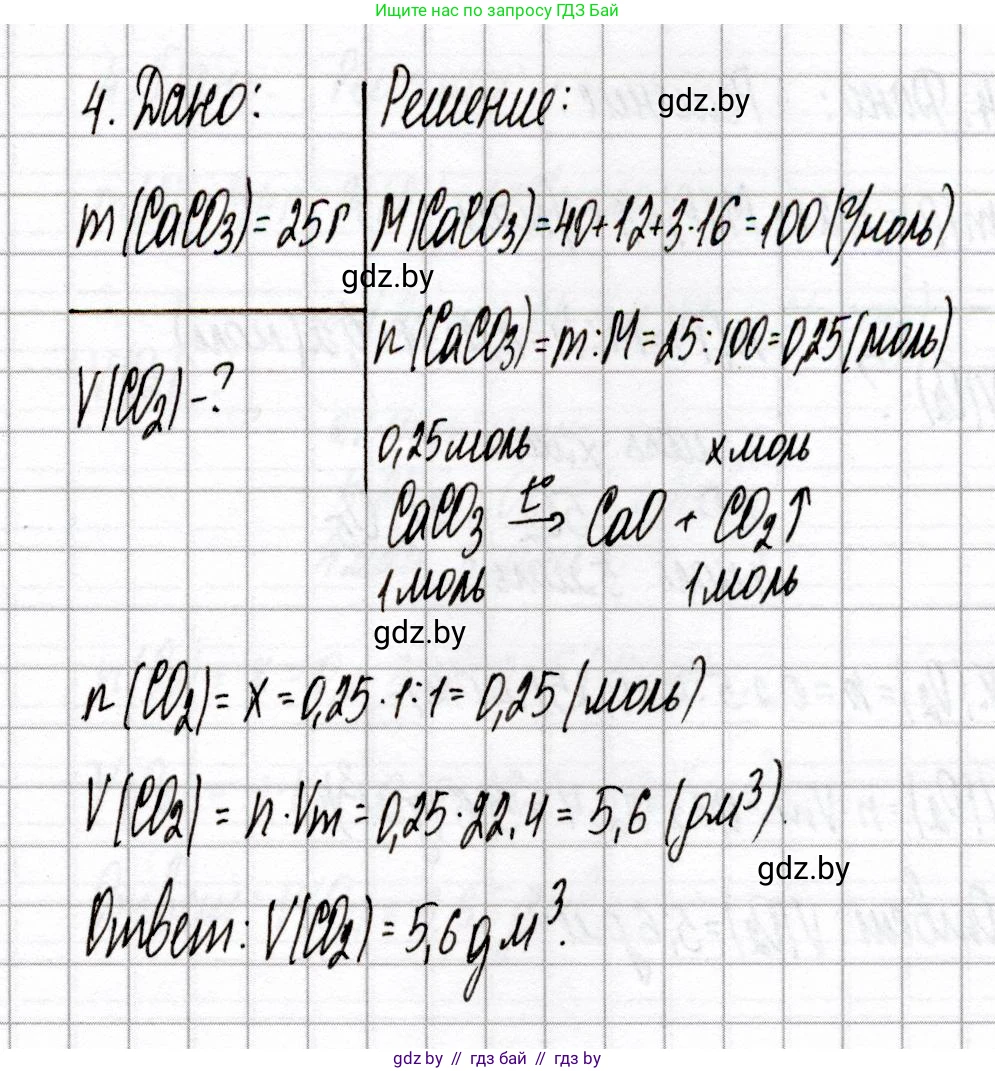 Ищите нас по запросу ГДЗ Бай
4. Дано:
Решение:
gdz.by
m(CaCO₃)=25г
M(CaCO₃)=40+12+3·16=100(г/моль)
gdz.by
n(CaCO₃)=m:M=25:100=0,25(моль)
V(CO₂)-?
0,25моль х моль
CaCO₃ t°→ CaO + CO₂↑
1моль 1моль
gdz.by
n(CO₂)= x = 0,25·1:1= 0,25(моль)
V(CO₂) = n·Vm = 0,25·22,4 = 5,6 (дм³).
gdz.by
Ответ: V(CO₂) = 5,6 дм³.
gdz.by // гдз бай // гдз by